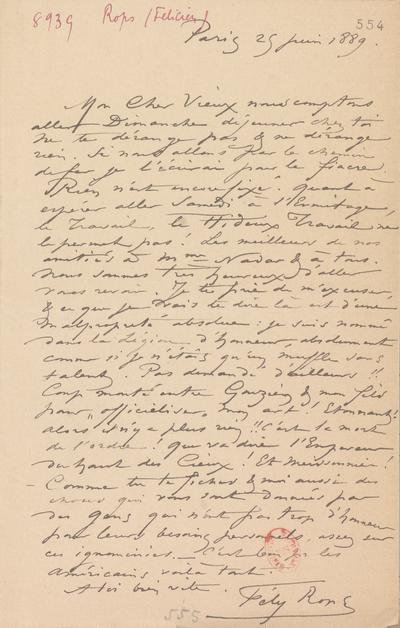 8939 Rops (Félicien)
554
Paris 25 juin 1889.
Mon Cher Vieux nous comptons
aller Dimanche déjeuner chez toi
ne te dérange pas & ne dérange
rien. Si nous allons par le chemin
de fer je t'écrirai pour le fiacre.
Rien n'est encore fixé. Quant à
espérer aller Samedi à l'Ermitage,
le Travail, le Hideux Travail ne
le permet pas! Les meilleures de nos
amitiés à Mme Nadar & à tous.
nous sommes très heureux d'aller
vous revoir. Je te prie de m'excuser,
& ce que je vais te dire là est d'une
malpropreté absolue: je suis nommé
dans la légion d'honneur, absolument
comme si je n'étais qu'un muffle sans
talent. Pas demandé d'ailleurs!!
Coup monté entre & mon fils
pour "officialiser" mon art! Etonnant!
alors il n'y a plus rien!! C'est la mort
de l'ordre! Que va dire l'Empereur
du haut des Cieux! Et Meissonnier!
– Comme tu te fiches & moi aussi des
choses qui vous sont données par
des gens qui n'ont pas trop d'honneur
pour leurs besoins personnels, assez sur
ces ignominies. – C'est bon pr les
américains voilà tout.
A toi bien vite. Fély Rops
555